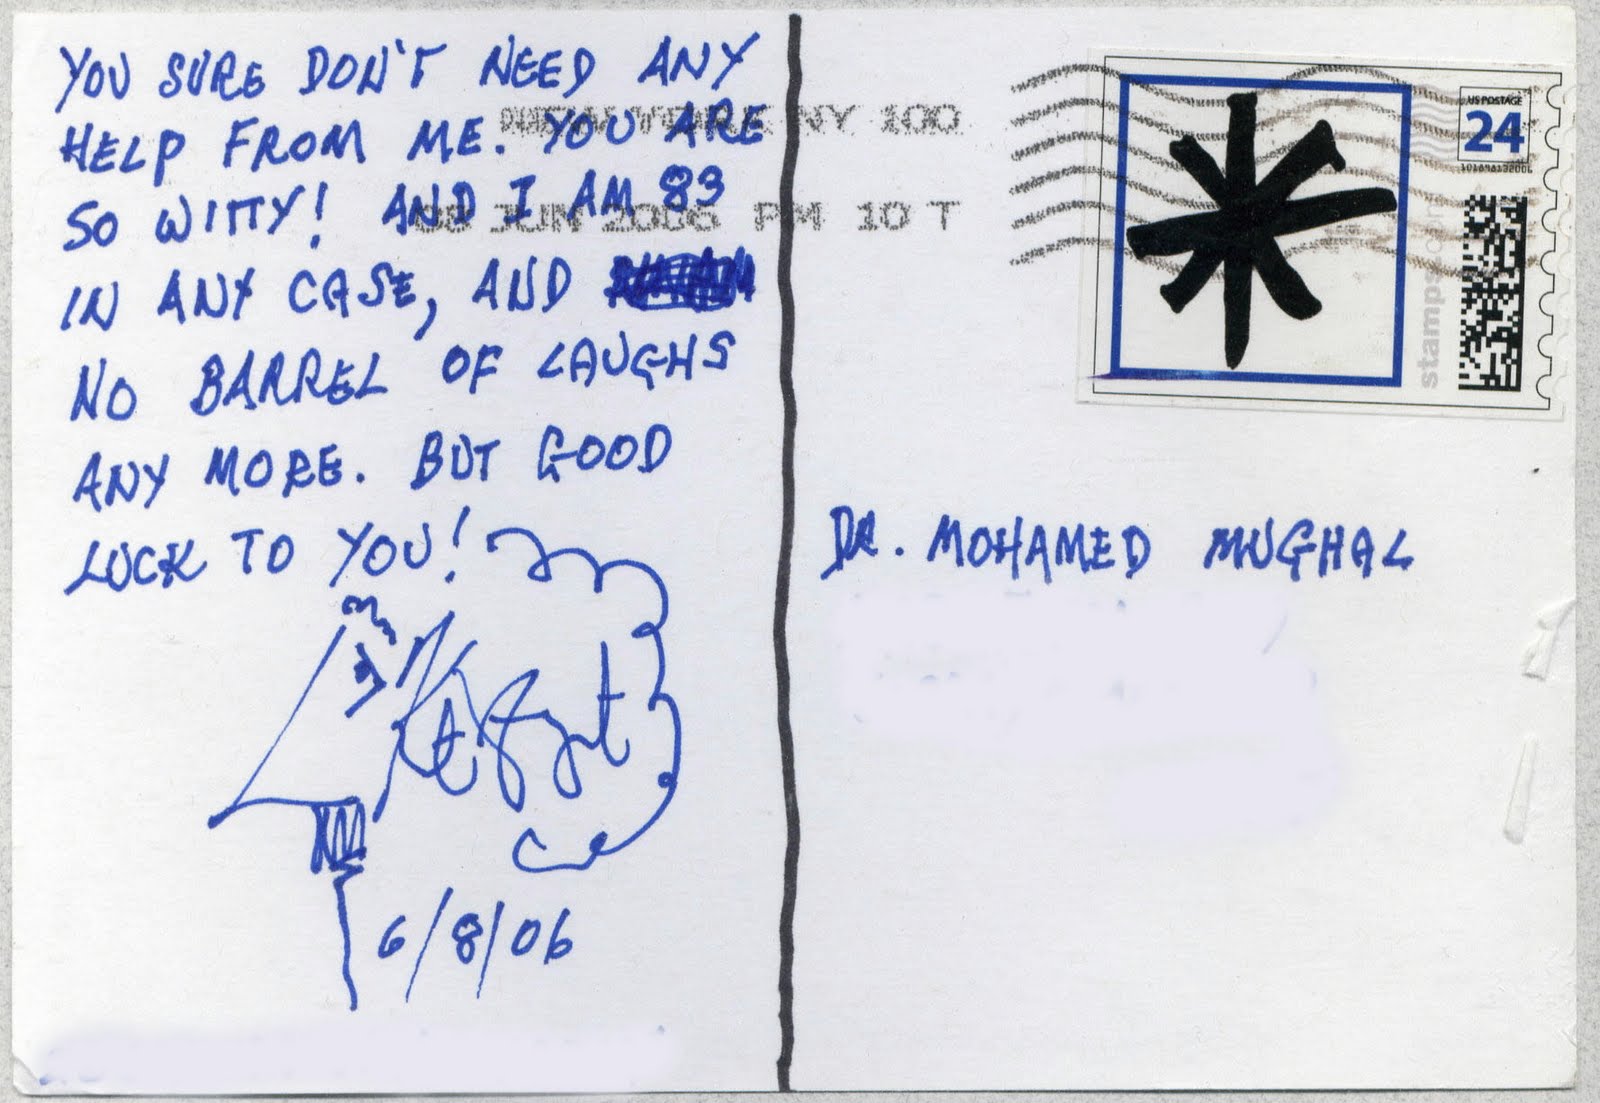 YOU SURE DON'T NEED ANY
HELP FROM ME. YOU ARE
SO WITTY! AND I AM 83
IN ANY CASE, AND
NO BARREL OF LAUGHS
ANY MORE. BUT GOOD
LUCK TO YOU!
6/8/06
NY 100
JUN 2006 PM 10 T
US POSTAGE
24
stamps.com
DR. MOHAMED MUGHAL